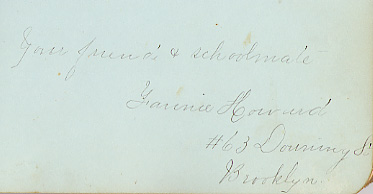 Your friend & schoolmate
Fannie Howard
#63 Downing St
Brooklyn